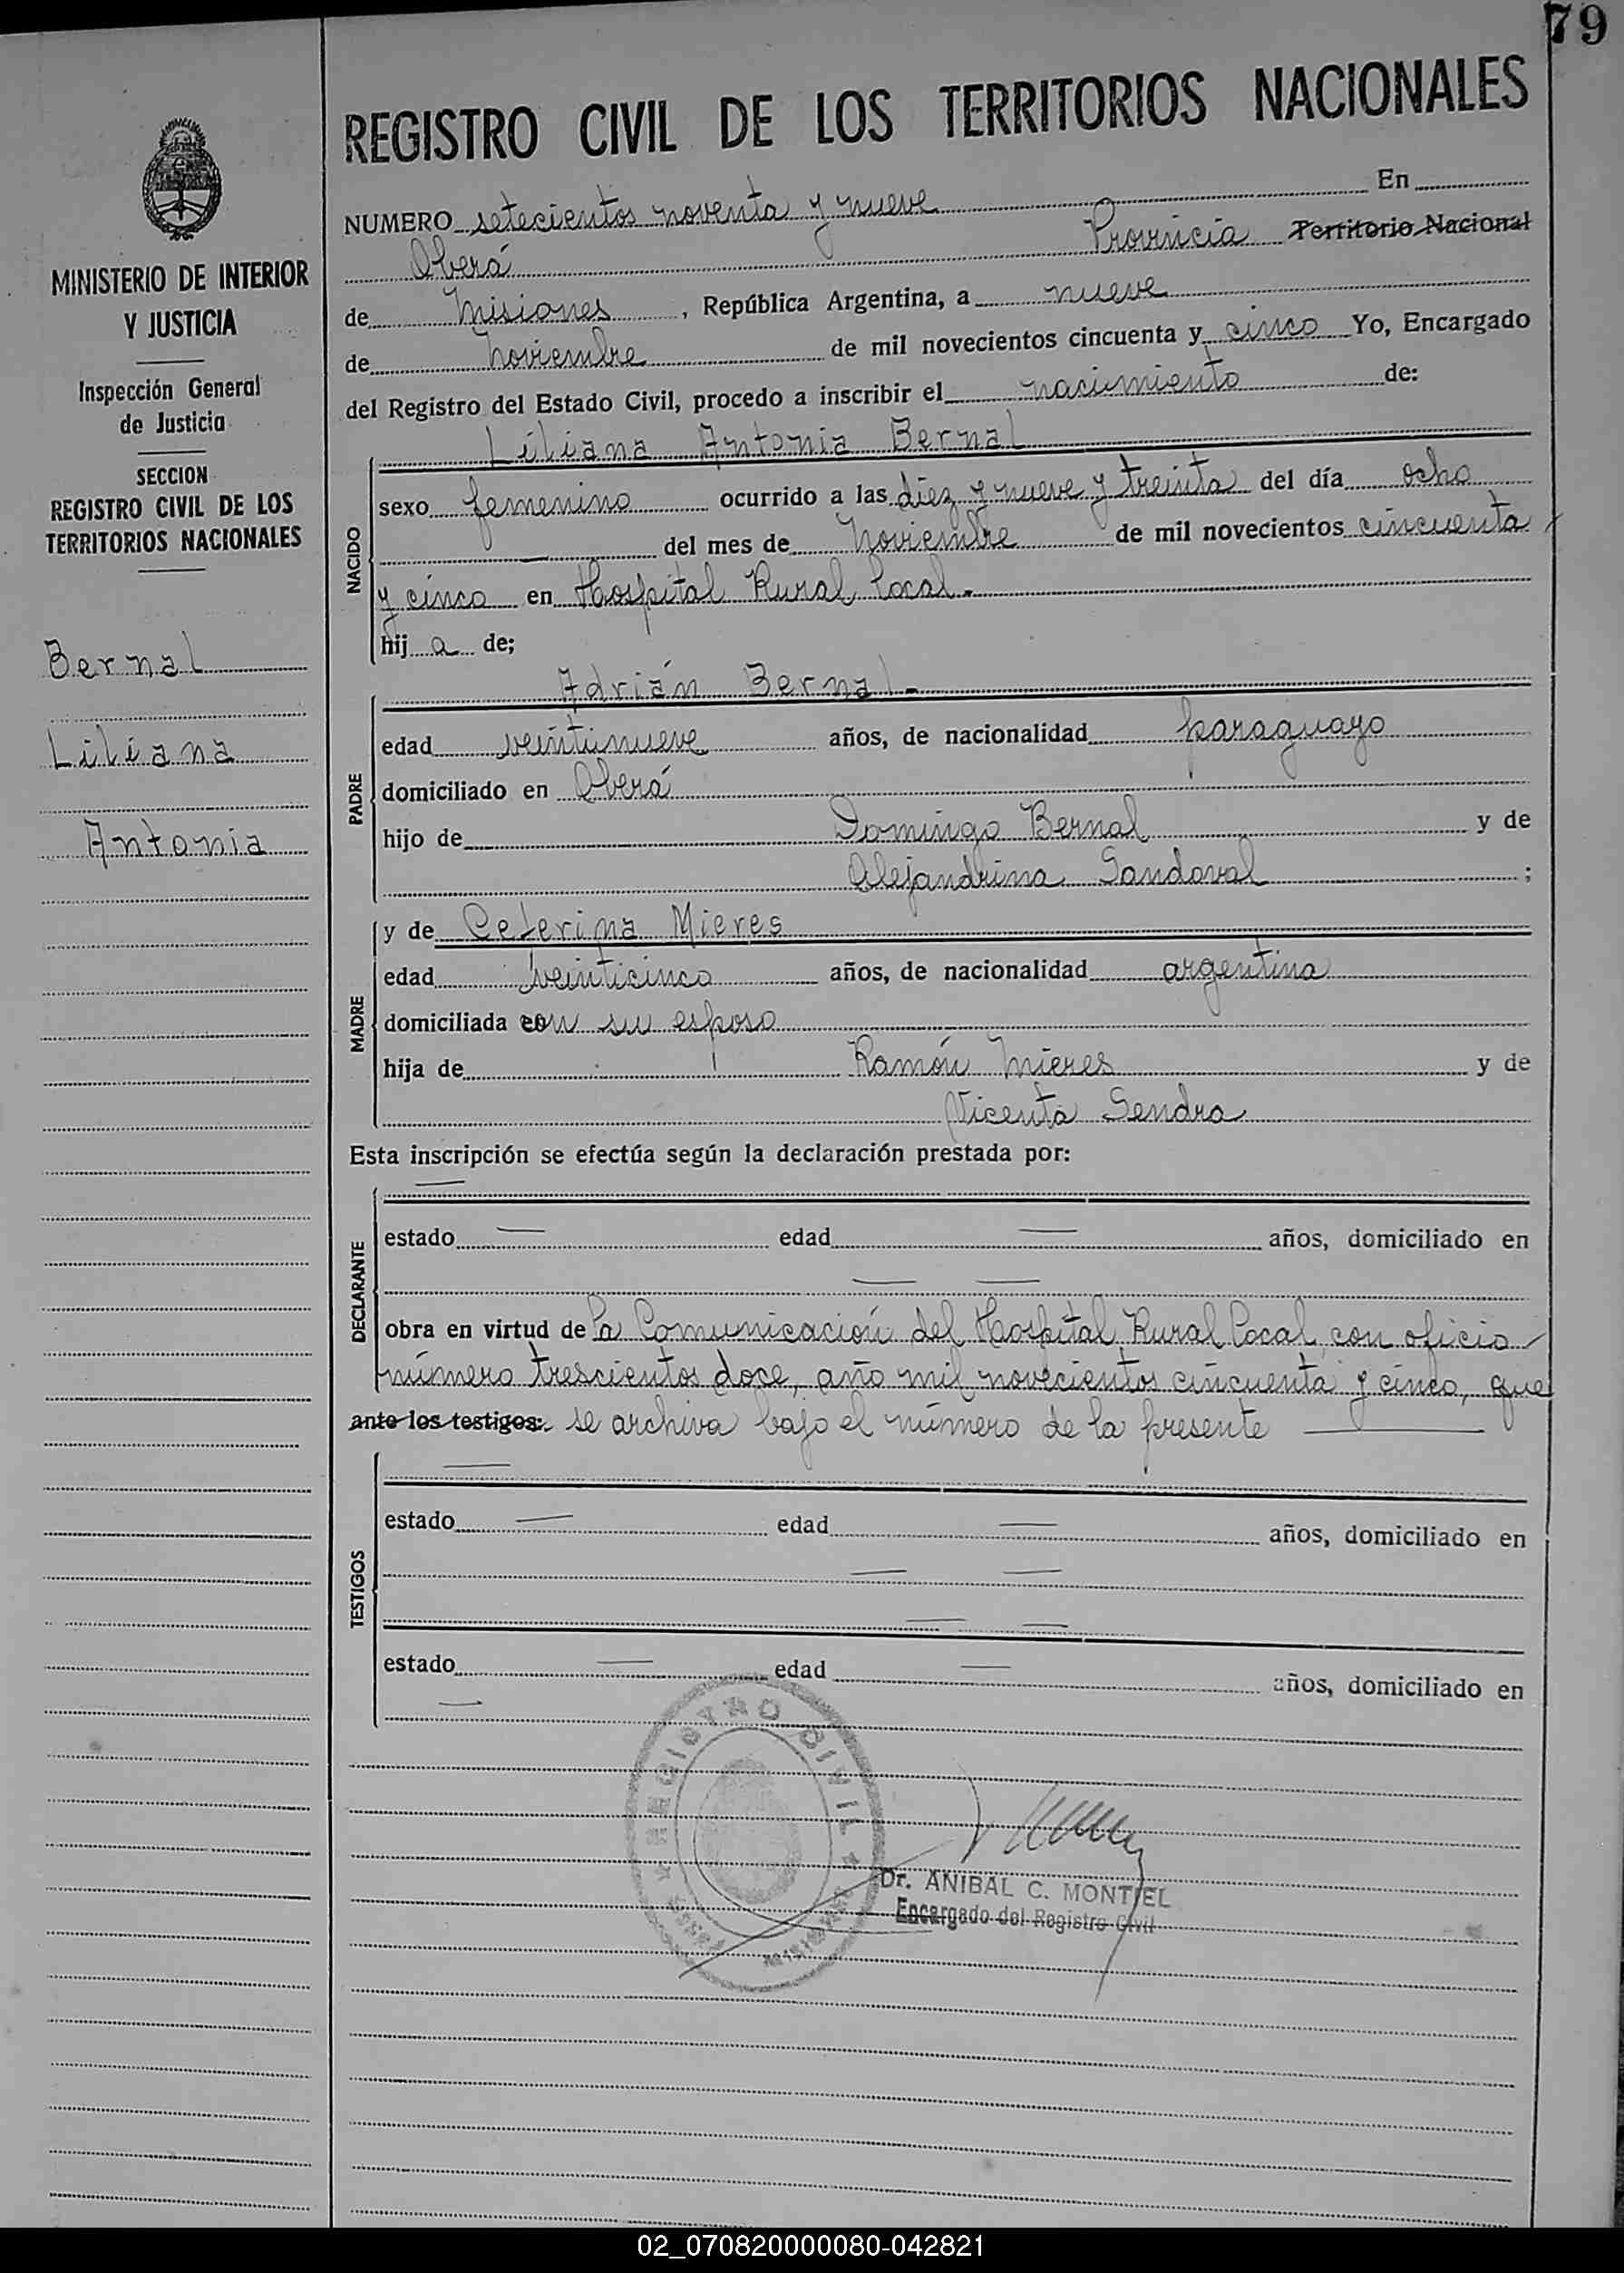 79
REGISTRO CIVIL DE LOS TERRITORIOS NACIONALES
MINISTERIO DE INTERIOR
Y JUSTICIA
Inspección General
de Justicia
SECCION
REGISTRO CIVIL DE LOS
TERRITORIOS NACIONALES
Bernal
Liliana
Antonia
NUMERO setecientos noventa y nueve En
Oberá Provincia Territorio Nacional
de Misiones, República Argentina, a nueve
de Noviembre de mil novecientos cincuenta y cinco Yo, Encargado
del Registro del Estado Civil, procedo a inscribir el nacimiento de:
NACIDO
Liliana Antonia Bernal
sexo femenino ocurrido a las diez y nueve y treinta del día ocho
del mes de Noviembre de mil novecientos cincuenta
y cinco en Hospital Rural Local.-
hij a de;
PADRE
Adrián Bernal-
edad veintinueve años, de nacionalidad paraguayo
domiciliado en Oberá
hijo de Domingo Bernal y de
Alejandrina Sandoval ;
MADRE
y de Ceferina Mieres
edad veinticinco años, de nacionalidad argentina
domiciliada con su esposo
hija de Ramón Mieres y de
Vicenta Sendra
Esta inscripción se efectúa según la declaración prestada por:
DECLARANTE
—
estado — edad — años, domiciliado en
— —
obra en virtud de la Comunicación del Hospital Rural Local, con oficio
número trescientos doce, año mil novecientos cincuenta y cinco, que
ante los testigos: se archiva bajo el número de la presente —
TESTIGOS
—
estado — edad — años, domiciliado en
— —
— —
estado — edad — años, domiciliado en
—
REGISTRO CIVIL
MISIONES
Dr. ANIBAL C. MONTIEL
Encargado del Registro Civil
02_070820000080-042821